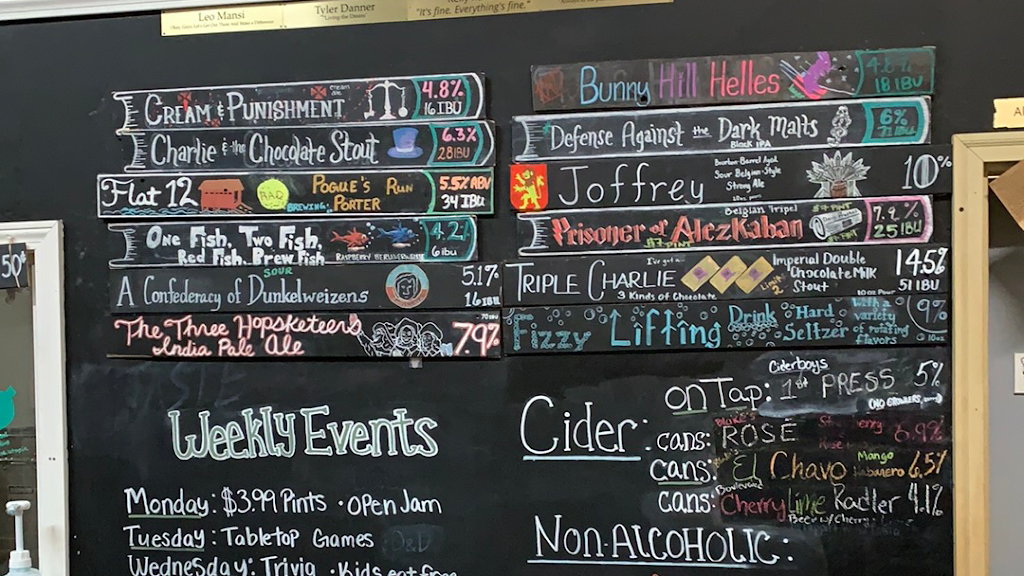 Leo Mansi
Tyler Danner
"Living the Dream"
"It's fine. Everything's fine."
Cream & Punishment
cream ale
4.8%
16 IBU
Charlie & the Chocolate Stout
6.3%
28 IBU
Flat 12
RAD
BREWING
Pogue's Run
Porter
5.5% ABV
34 IBU
One Fish, Two Fish,
Red Fish, Brew Fish
4.2%
6 IBU
SOUR
A Confederacy of Dunkelweizens
5.1%
16 IBU
The Three Hopsketeers
India Pale Ale
70 IBU
7.9%
Bunny Hill Helles
4.8%
18 IBU
Defense Against the Dark Malts
Black IPA
6%
71 IBU
Joffrey
Bourbon-Barrel Aged
Sour Belgian-Style
Strong Ale
10%
Belgian Tripel
Prisoner of AlezKaban
7.9%
25 IBU
I've got a
Triple Charlie
3 Kinds of Chocolate
Imperial Double
Chocolate Milk
Stout
14.5%
51 IBU
Fizzy Lifting Drink
Hard
Seltzer
with a
variety
of rotating
flavors
9%
10oz
Weekly Events
Monday: $3.99 Pints • Open Jam
Tuesday: Tabletop Games D&D
Wednesday: Trivia • Kids eat free
Cider:
on Tap: Ciderboys
1st PRESS 5%
(NO GROWLERS)
cans: ROSÉ 6.9%
cans: El Chavo Mango
Habanero 6.5%
cans: Boulevard
Cherry Lime Radler 4.1%
Beer w/ Cherry
Non-Alcoholic: